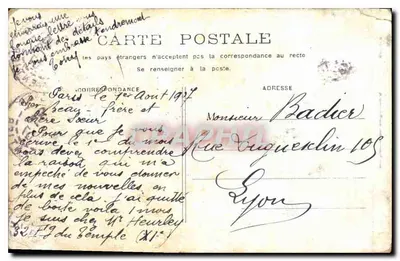 Je vous
une
longue lettre
donnant de détails
Je vous embrasse tendrement
CARTE POSTALE
les pays étrangers n'acceptent pas la correspondance au recto
Se renseigner à la poste.
CORRESPONDANCE
ADRESSE
Paris le 1er Aout
Beau-frère et
Sœur
Pour que je vous
écrive le 1er du mois
vous devez comprendre
la raison qui m'a
empeché de vous donner
de mes nouvelles, en
plus de cela j'ai quitté
de boite voila 1 mois,
Je suis chez Mr Heurley
du Temple (XIe)
Monsieur Badier
Rue Duguesclin 105
Lyon